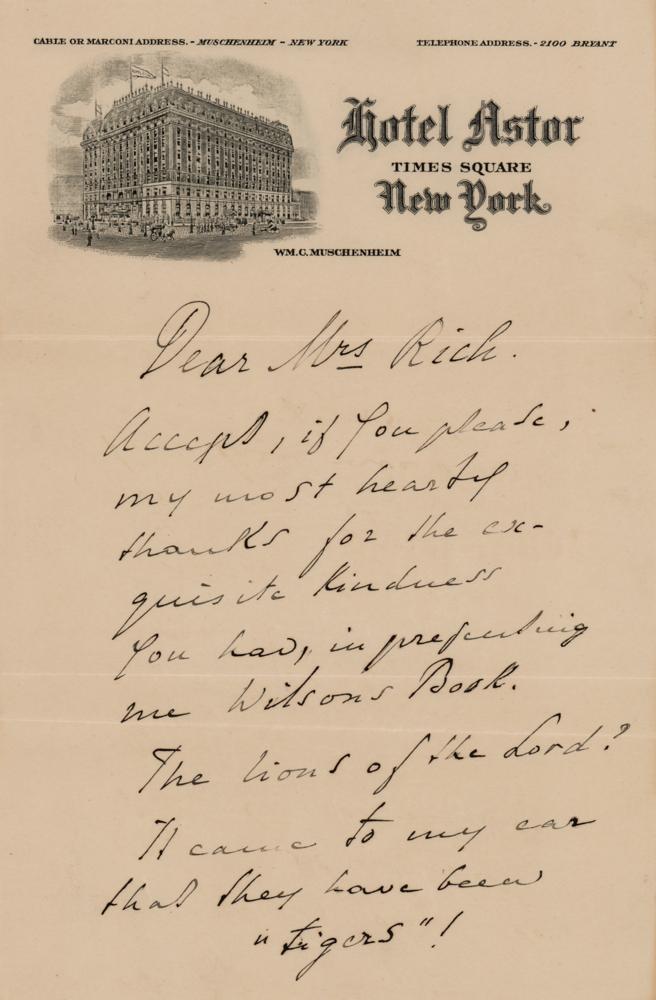 CABLE OR MARCONI ADDRESS. - MUSCHENHEIM - NEW YORK
TELEPHONE ADDRESS. - 2100 BRYANT
Hotel Astor
TIMES SQUARE
New York
WM. C. MUSCHENHEIM
Dear Mrs Rich.
Accept, if You please,
my most hearty
thanks for the ex-
quisite Kindness
You had, in presenting
me Wilsons Book.
The Lions of the Lord?
It came to my ear
that they have been
"tigers"!